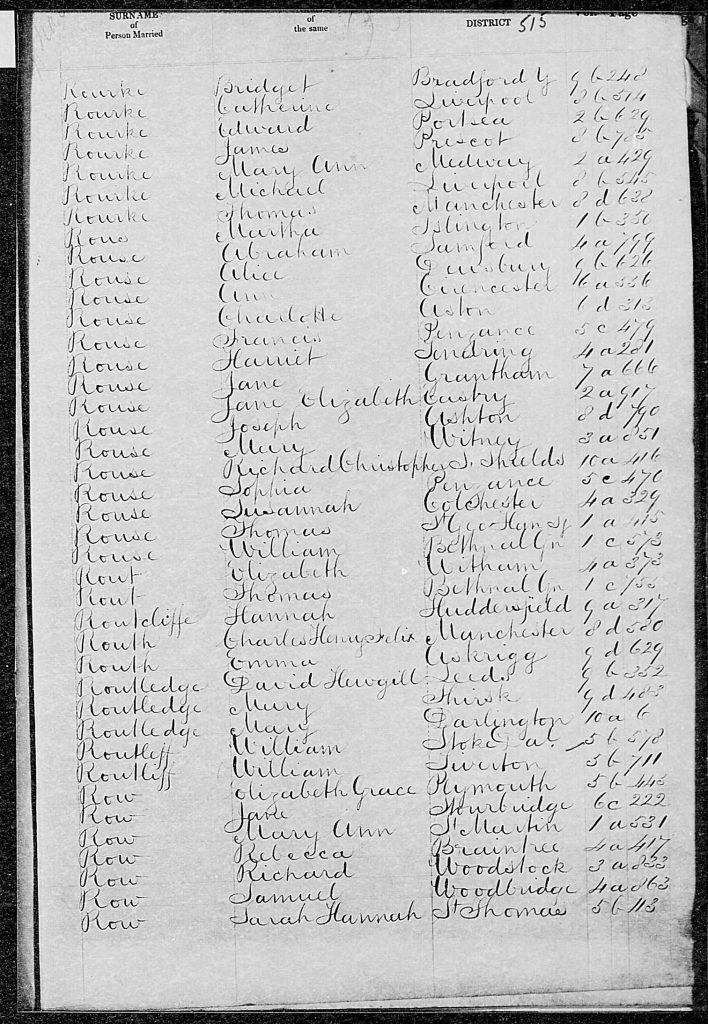 SURNAME of Person Married of the same DISTRICT 515 Page
Rourke Bridget Bradford Y 9 b 248
Rourke Catherine Liverpool 8 b 514
Rourke Edward Portsea 2 b 629
Rourke James Prescot 8 b 785
Rourke Mary Ann Medway 2 a 429
Rourke Michael Liverpool 8 b 545
Rourke Thomas Manchester 8 d 638
Rous Martha Islington 1 b 350
Rouse Abraham Samford 4 a 799
Rouse Alice Dewsbury 9 b 626
Rouse Ann Cirencester 6 a 556
Rouse Charlotte Aston 6 d 313
Rouse Francis Penzance 5 c 479
Rouse Harriet Tendring 4 a 281
Rouse Jane Grantham 7 a 666
Rouse Jane Elizabeth Eastry 2 a 917
Rouse Joseph Ashton 8 d 790
Rouse Mary Witney 3 a 851
Rouse Richard Christopher S. Shields 10 a 416
Rouse Sophia Penzance 5 c 470
Rouse Susannah Colchester 4 a 329
Rouse Thomas St Geo Han Sq 1 a 415
Rouse William Bethnal Gn 1 c 573
Rout Elizabeth Witham 4 a 373
Rout Thomas Bethnal Gn 1 c 755
Routcliffe Hannah Huddersfield 9 a 317
Routh Charles Henry Felix Manchester 8 d 580
Routh Emma Askrigg 9 d 629
Routledge David Hewgill Leeds 9 b 352
Routledge Mary Thirsk 9 d 483
Routledge Mary Darlington 10 a 6
Routleff William Stoke Dal. 5 b 578
Routliff William Tiverton 5 b 711
Row Elizabeth Grace Plymouth 5 b 443
Row Jane Stourbridge 6 c 222
Row Mary Ann St Martin 1 a 531
Row Rebecca Braintree 4 a 417
Row Richard Woodstock 3 a 833
Row Samuel Woodbridge 4 a 863
Row Sarah Hannah St Thomas 5 b 113